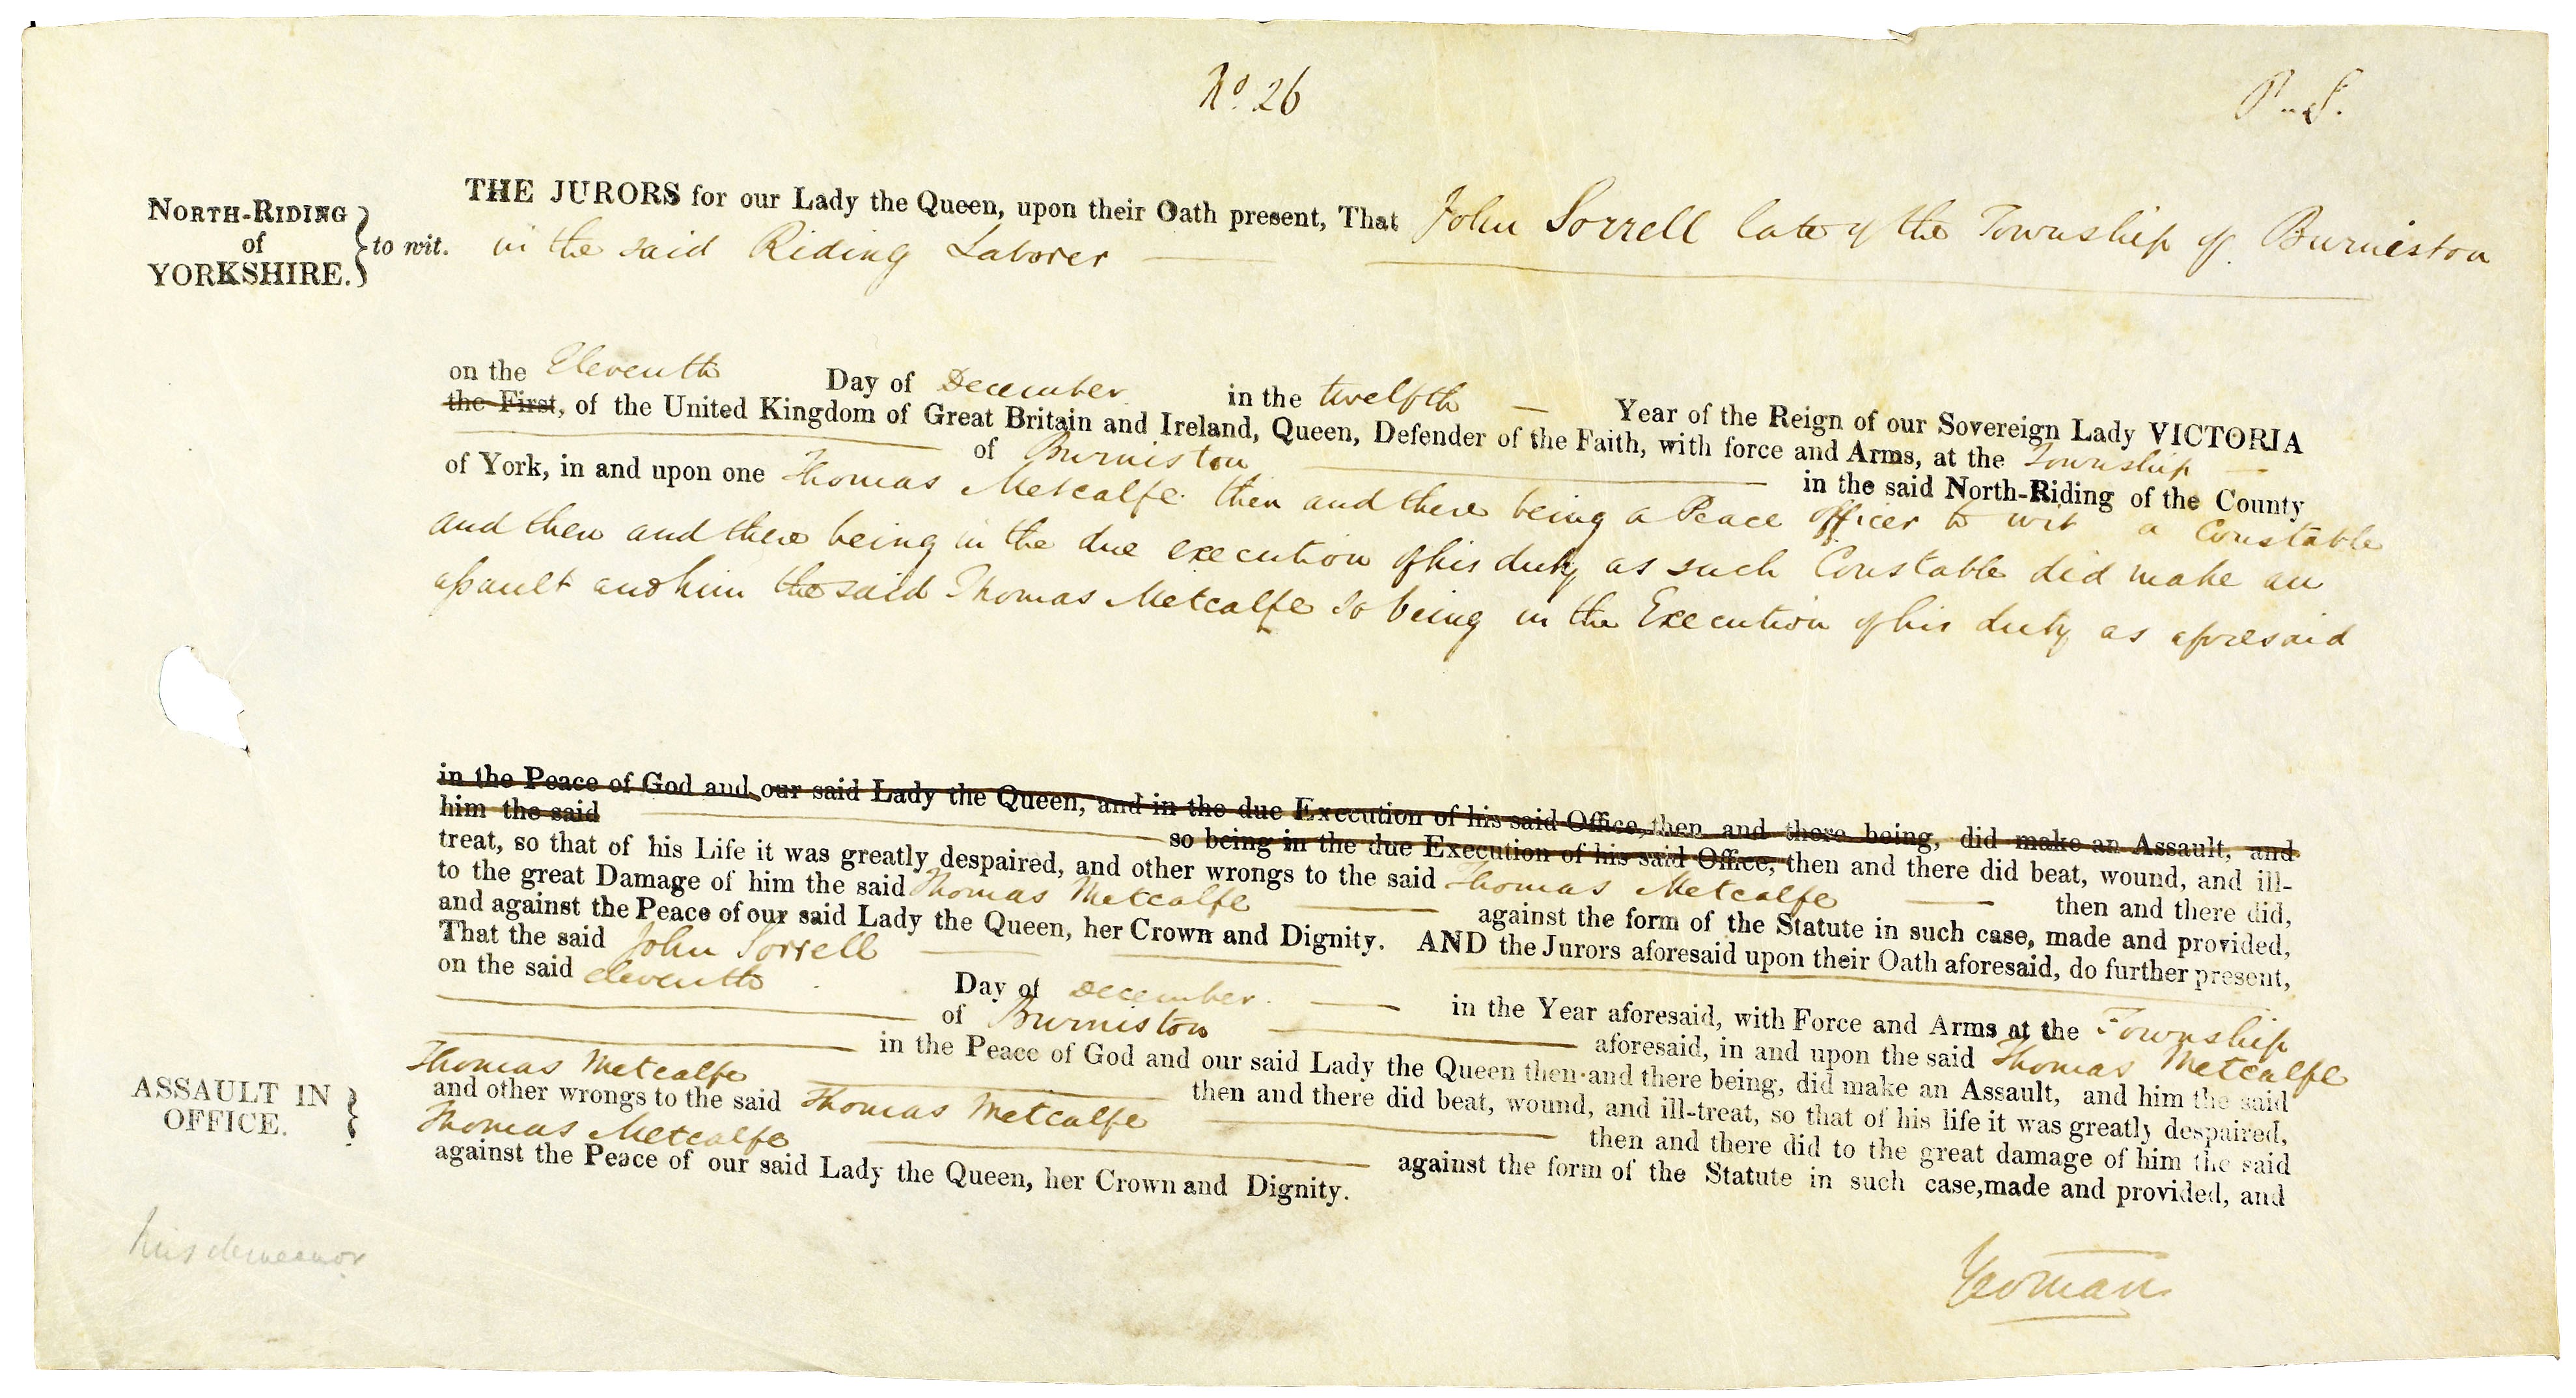 No. 26
NORTH-RIDING
of
YORKSHIRE.
to wit.
THE JURORS for our Lady the Queen, upon their Oath present, That John Sorrell late of the Township of Burniston
in the said Riding Laborer
on the Eleventh Day of December in the twelfth Year of the Reign of our Sovereign Lady VICTORIA
the First, of the United Kingdom of Great Britain and Ireland, Queen, Defender of the Faith, with force and Arms, at the Township
of Burniston in the said North-Riding of the County
of York, in and upon one Thomas Metcalfe then and there being a Peace Officer to wit a Constable
and then and there being in the due execution of his duty as such Constable did make an
assault and him the said Thomas Metcalfe so being in the Execution of his duty as aforesaid
in the Peace of God and our said Lady the Queen, and in the due Execution of his said Office, then and there being, did make an Assault, and
him the said so being in the due Execution of his said Office, then and there did beat, wound, and ill-
treat, so that of his Life it was greatly despaired, and other wrongs to the said Thomas Metcalfe then and there did,
to the great Damage of him the said Thomas Metcalfe against the form of the Statute in such case, made and provided,
and against the Peace of our said Lady the Queen, her Crown and Dignity. AND the Jurors aforesaid upon their Oath aforesaid, do further present,
That the said John Sorrell
on the said eleventh Day of December in the Year aforesaid, with Force and Arms at the Township
of Burniston aforesaid, in and upon the said Thomas Metcalfe
in the Peace of God and our said Lady the Queen then and there being, did make an Assault, and him the said
Thomas Metcalfe then and there did beat, wound, and ill-treat, so that of his life it was greatly despaired,
and other wrongs to the said Thomas Metcalfe then and there did to the great damage of him the said
Thomas Metcalfe against the form of the Statute in such case, made and provided, and
against the Peace of our said Lady the Queen, her Crown and Dignity.
ASSAULT IN
OFFICE.
Misdemeanor
Yeoman